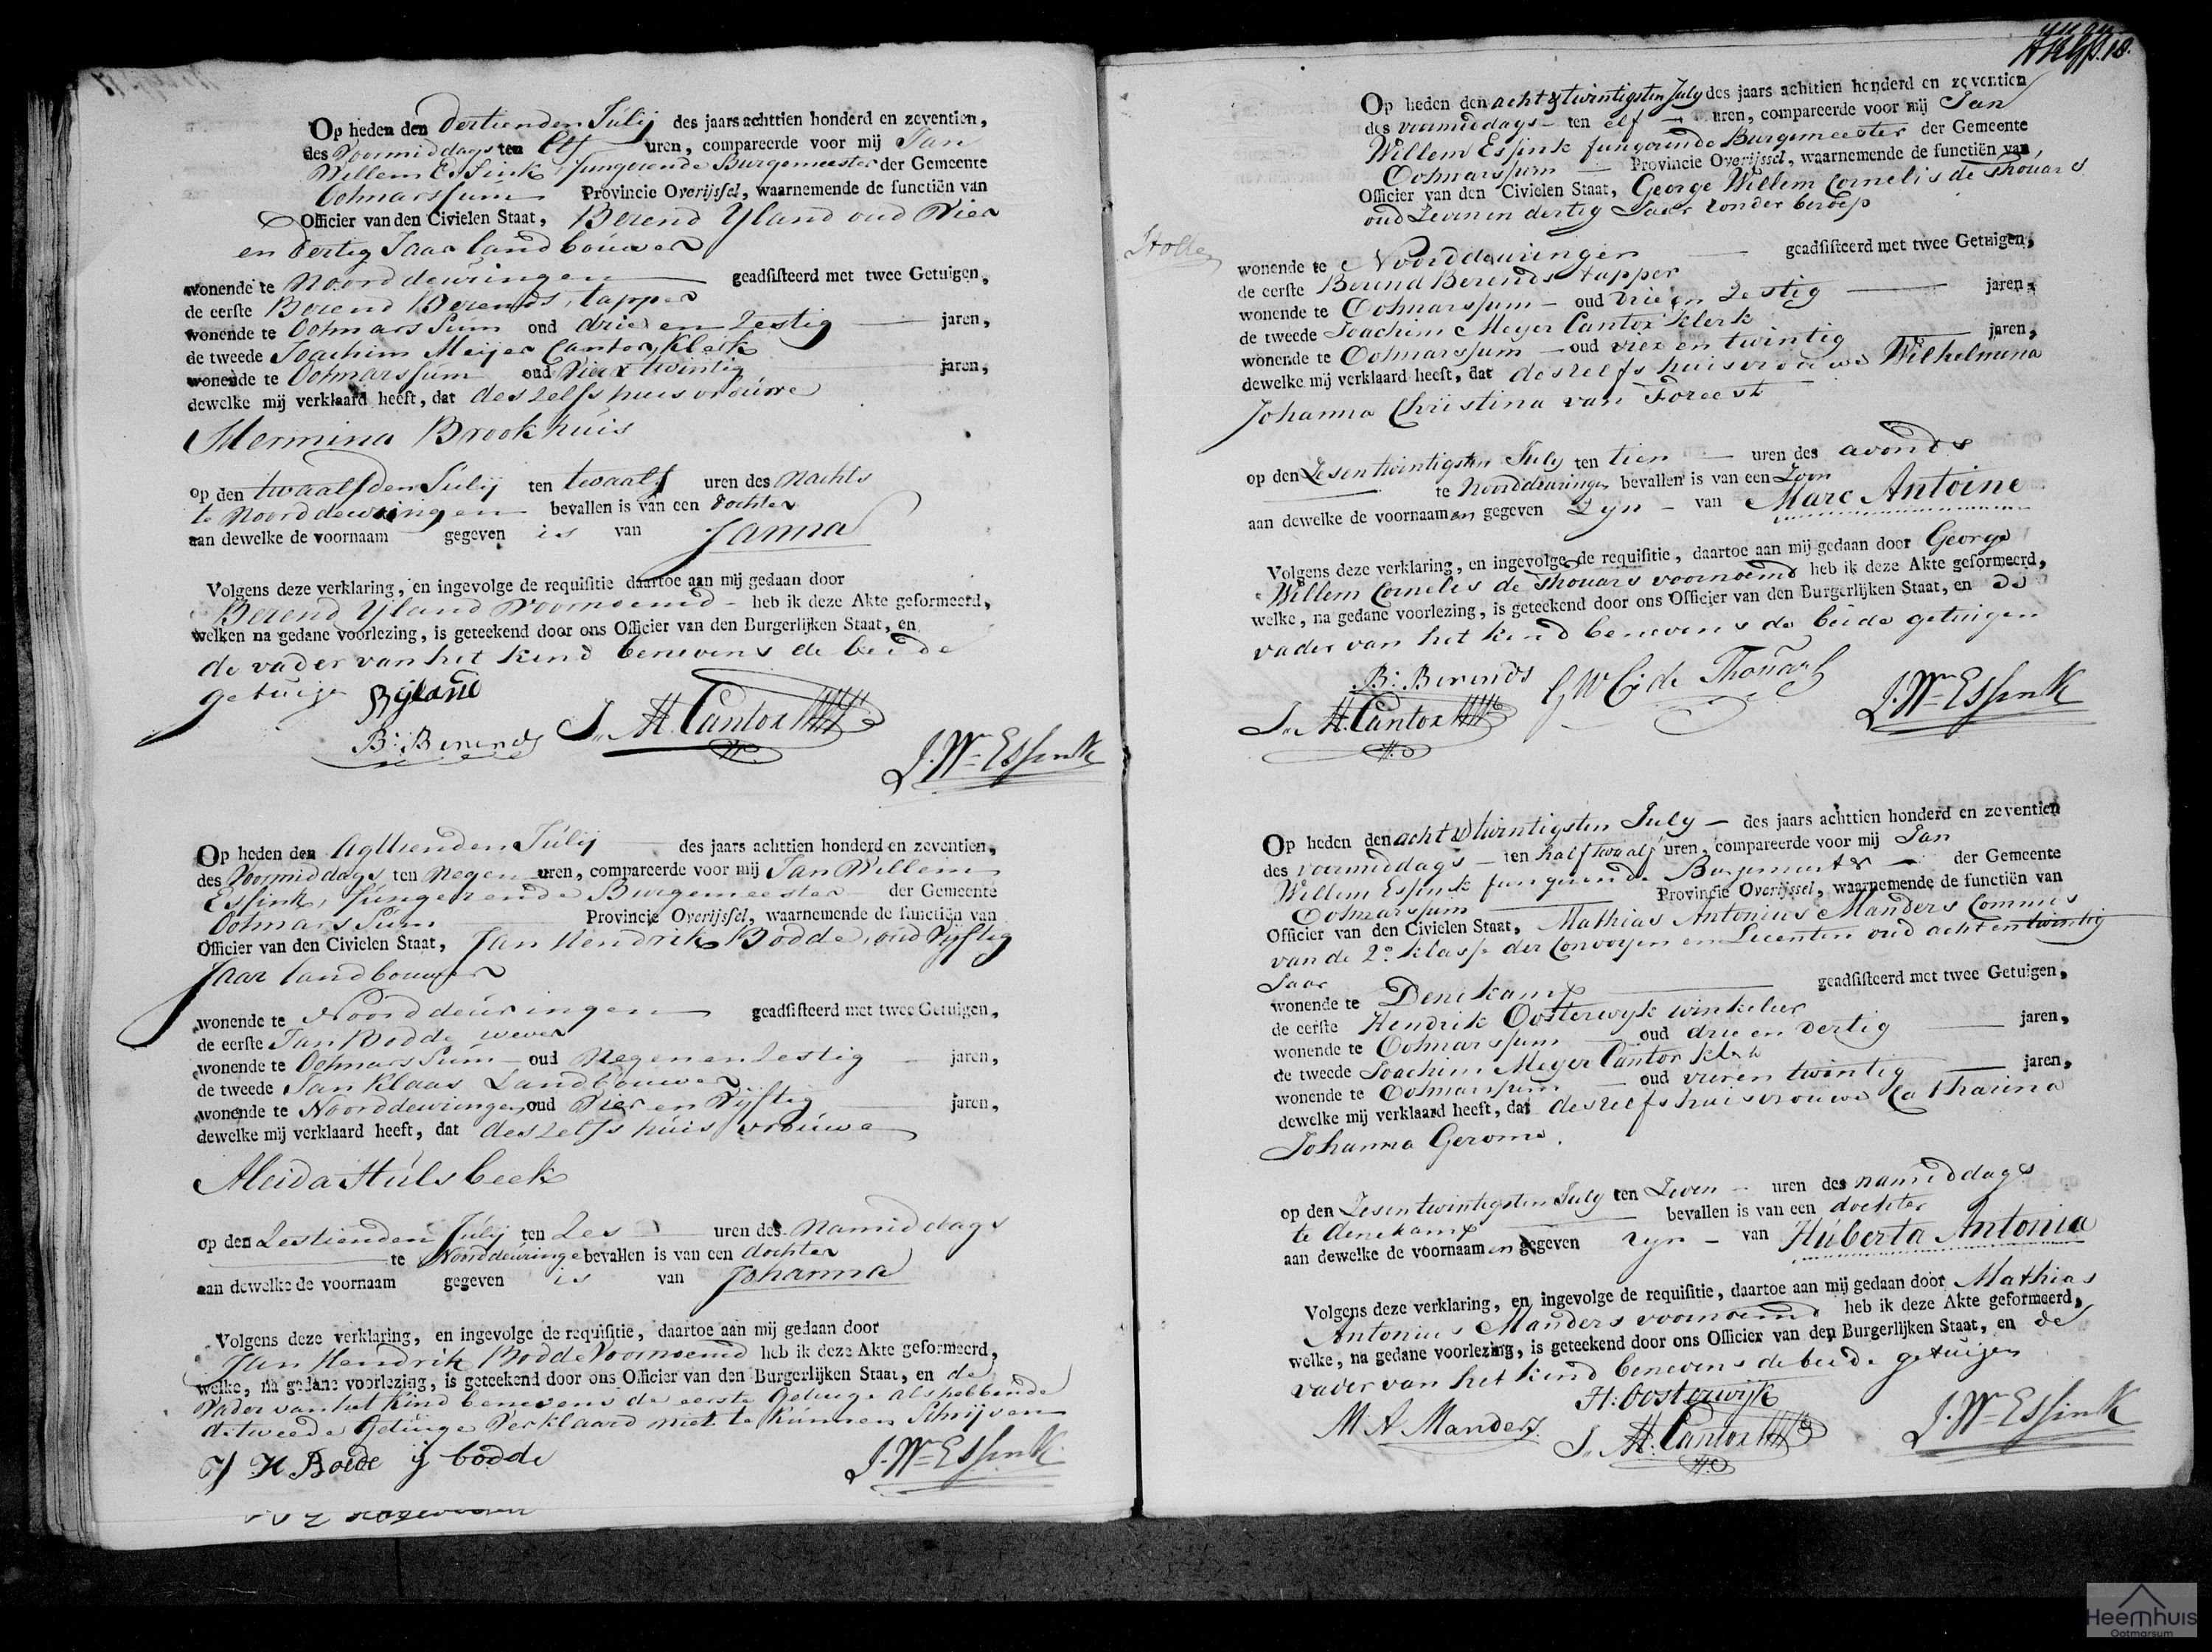 Op heden den dertienden Julij des jaars achttien honderd en zeventien,
des Voormiddags ten Elf uren, compareerde voor mij Jan
Willem Essink, fungerende Burgemeester der Gemeente
Ootmarssum Provincie Overijssel, waarnemende de functiën van
Officier van den Civielen Staat, Berend Yland oud Vier
en dertig Jaar landbouwer
wonende te Noorddeuringen geadsisteerd met twee Getuigen,
de eerste Berend Berends, tapper
wonende te Ootmarssum oud drie en Zestig jaren,
de tweede Joachim Meijer Cantor, Klerk
wonende te Ootmarssum oud Vier & twintig jaren,
dewelke mij verklaard heeft, dat deszelfs huisvrouwe
Hermina Brookhuis
op den twaalfden Julij ten twaalf uren des Nachts
te Noorddeuringen bevallen is van een dochter
aan dewelke de voornaam gegeven is van Janna
Volgens deze verklaring, en ingevolge de requisitie daartoe aan mij gedaan door
Berend Yland Voornoemd - heb ik deze Akte geformeerd,
welken na gedane voorlezing, is geteekend door ons Officier van den Burgerlijken Staat, en
de vader van het kind benevens de beide
getuige
BYland
B: Berends J. M. Cantor
J. Wm Essink
Op heden den Agttienden Julij des jaars achttien honderd en zeventien,
des Voormiddags ten Negen uren, compareerde voor mij Jan Willem
Essink, fungerende Burgemeester der Gemeente
Ootmarssum Provincie Overijssel, waarnemende de functiën van
Officier van den Civielen Staat, Jan Hendrik Bodde, oud Vijftig
Jaar landbouwer
wonende te Noorddeuringen geadsisteerd met twee Getuigen,
de eerste Jan Bodde wever
wonende te Ootmarssum oud Negen en Zestig jaren,
de tweede Jan Klaas Landbouwer
wonende te Noorddeuringen oud Vier en Vijftig jaren,
dewelke mij verklaard heeft, dat deszelfs huisvrouwe
Aleida Hulsbeek
op den Zestienden Julij ten Zes uren des Namiddags
te Noorddeuringe bevallen is van een dochter
aan dewelke de voornaam gegeven is van Johanna
Volgens deze verklaring, en ingevolge de requisitie, daartoe aan mij gedaan door
Jan Hendrik Bodde Voornoemd heb ik deze Akte geformeerd,
welke, na gedane voorlezing, is geteekend door ons Officier van den Burgerlijken Staat, en de
Vader van het Kind benevens de eerste Getuige als hebbende
de tweede Getuige Verklaard niet te Kunnen Schrijven
J H Bodde ij bodde J. Wm Essink
18.
Op heden den acht & twintigsten July des jaars achttien honderd en zeventien
des voormiddags ten elf uren, compareerde voor mij Jan
Willem Essink fungerende Burgemeester der Gemeente
Ootmarssum Provincie Overijssel, waarnemende de functiën van
Officier van den Civielen Staat, George Willem Cornelis de Thouars
oud Zeven en dertig Jaar zonder beroep
wonende te Noorddeuringen geadsisteerd met twee Getuigen,
de eerste Berend Berends tapper
wonende te Ootmarssum oud drie en Zestig jaren,
de tweede Joachim Meyer Cantor Klerk
wonende te Ootmarssum oud vier en twintig jaren,
dewelke mij verklaard heeft, dat deszelfs huisvrouwe Wilhelmina
Johanna Christina van Foreest
op den Zesentwintigsten July ten tien uren des avonds
te Noorddeuringe bevallen is van een Zoon
aan dewelke de voornaamen gegeven Zyn van Marc Antoine
Volgens deze verklaring, en ingevolge de requisitie, daartoe aan mij gedaan door George
Willem Cornelis de Thouars voornoemd heb ik deze Akte geformeerd,
welke, na gedane voorlezing, is geteekend door ons Officier van den Burgerlijken Staat, en de
vader van het kind benevens de beide getuigen
B: Berends G W C: de Thouars
J. M. Cantor J. Wm Essink
Op heden den acht & twintigsten July des jaars achttien honderd en zeventien
des voormiddags ten half twaalf uren, compareerde voor mij Jan
Willem Essink fungerende Burgemeester der Gemeente
Ootmarssum Provincie Overijssel, waarnemende de functiën van
Officier van den Civielen Staat, Mathias Antonius Manders Commies
van de 2e klasse der Convoyen en Licenten oud achtentwintig
Jaar
wonende te Denekamp geadsisteerd met twee Getuigen,
de eerste Hendrik Oosterwyk winkelier
wonende te Ootmarssum oud drie en dertig jaren,
de tweede Joachim Meyer Cantor Klerk
wonende te Ootmarssum oud vieren twintig jaren,
dewelke mij verklaard heeft, dat deszelfs huisvrouwe Catharina
Johanna Gerome.
op den Zesentwintigsten July ten Zeven uren des namiddags
te Denekamp bevallen is van een dochter
aan dewelke de voornaamen gegeven zyn van Huberta Antonia
Volgens deze verklaring, en ingevolge de requisitie, daartoe aan mij gedaan door Mathias
Antonius Manders voornoemd heb ik deze Akte geformeerd,
welke, na gedane voorlezing, is geteekend door ons Officier van den Burgerlijken Staat, en de
vader van het kind benevens de beide getuigen
H: Oosterwijk
M A Manders J. M. Cantor J. Wm Essink
Heemhuis
Ootmarsum